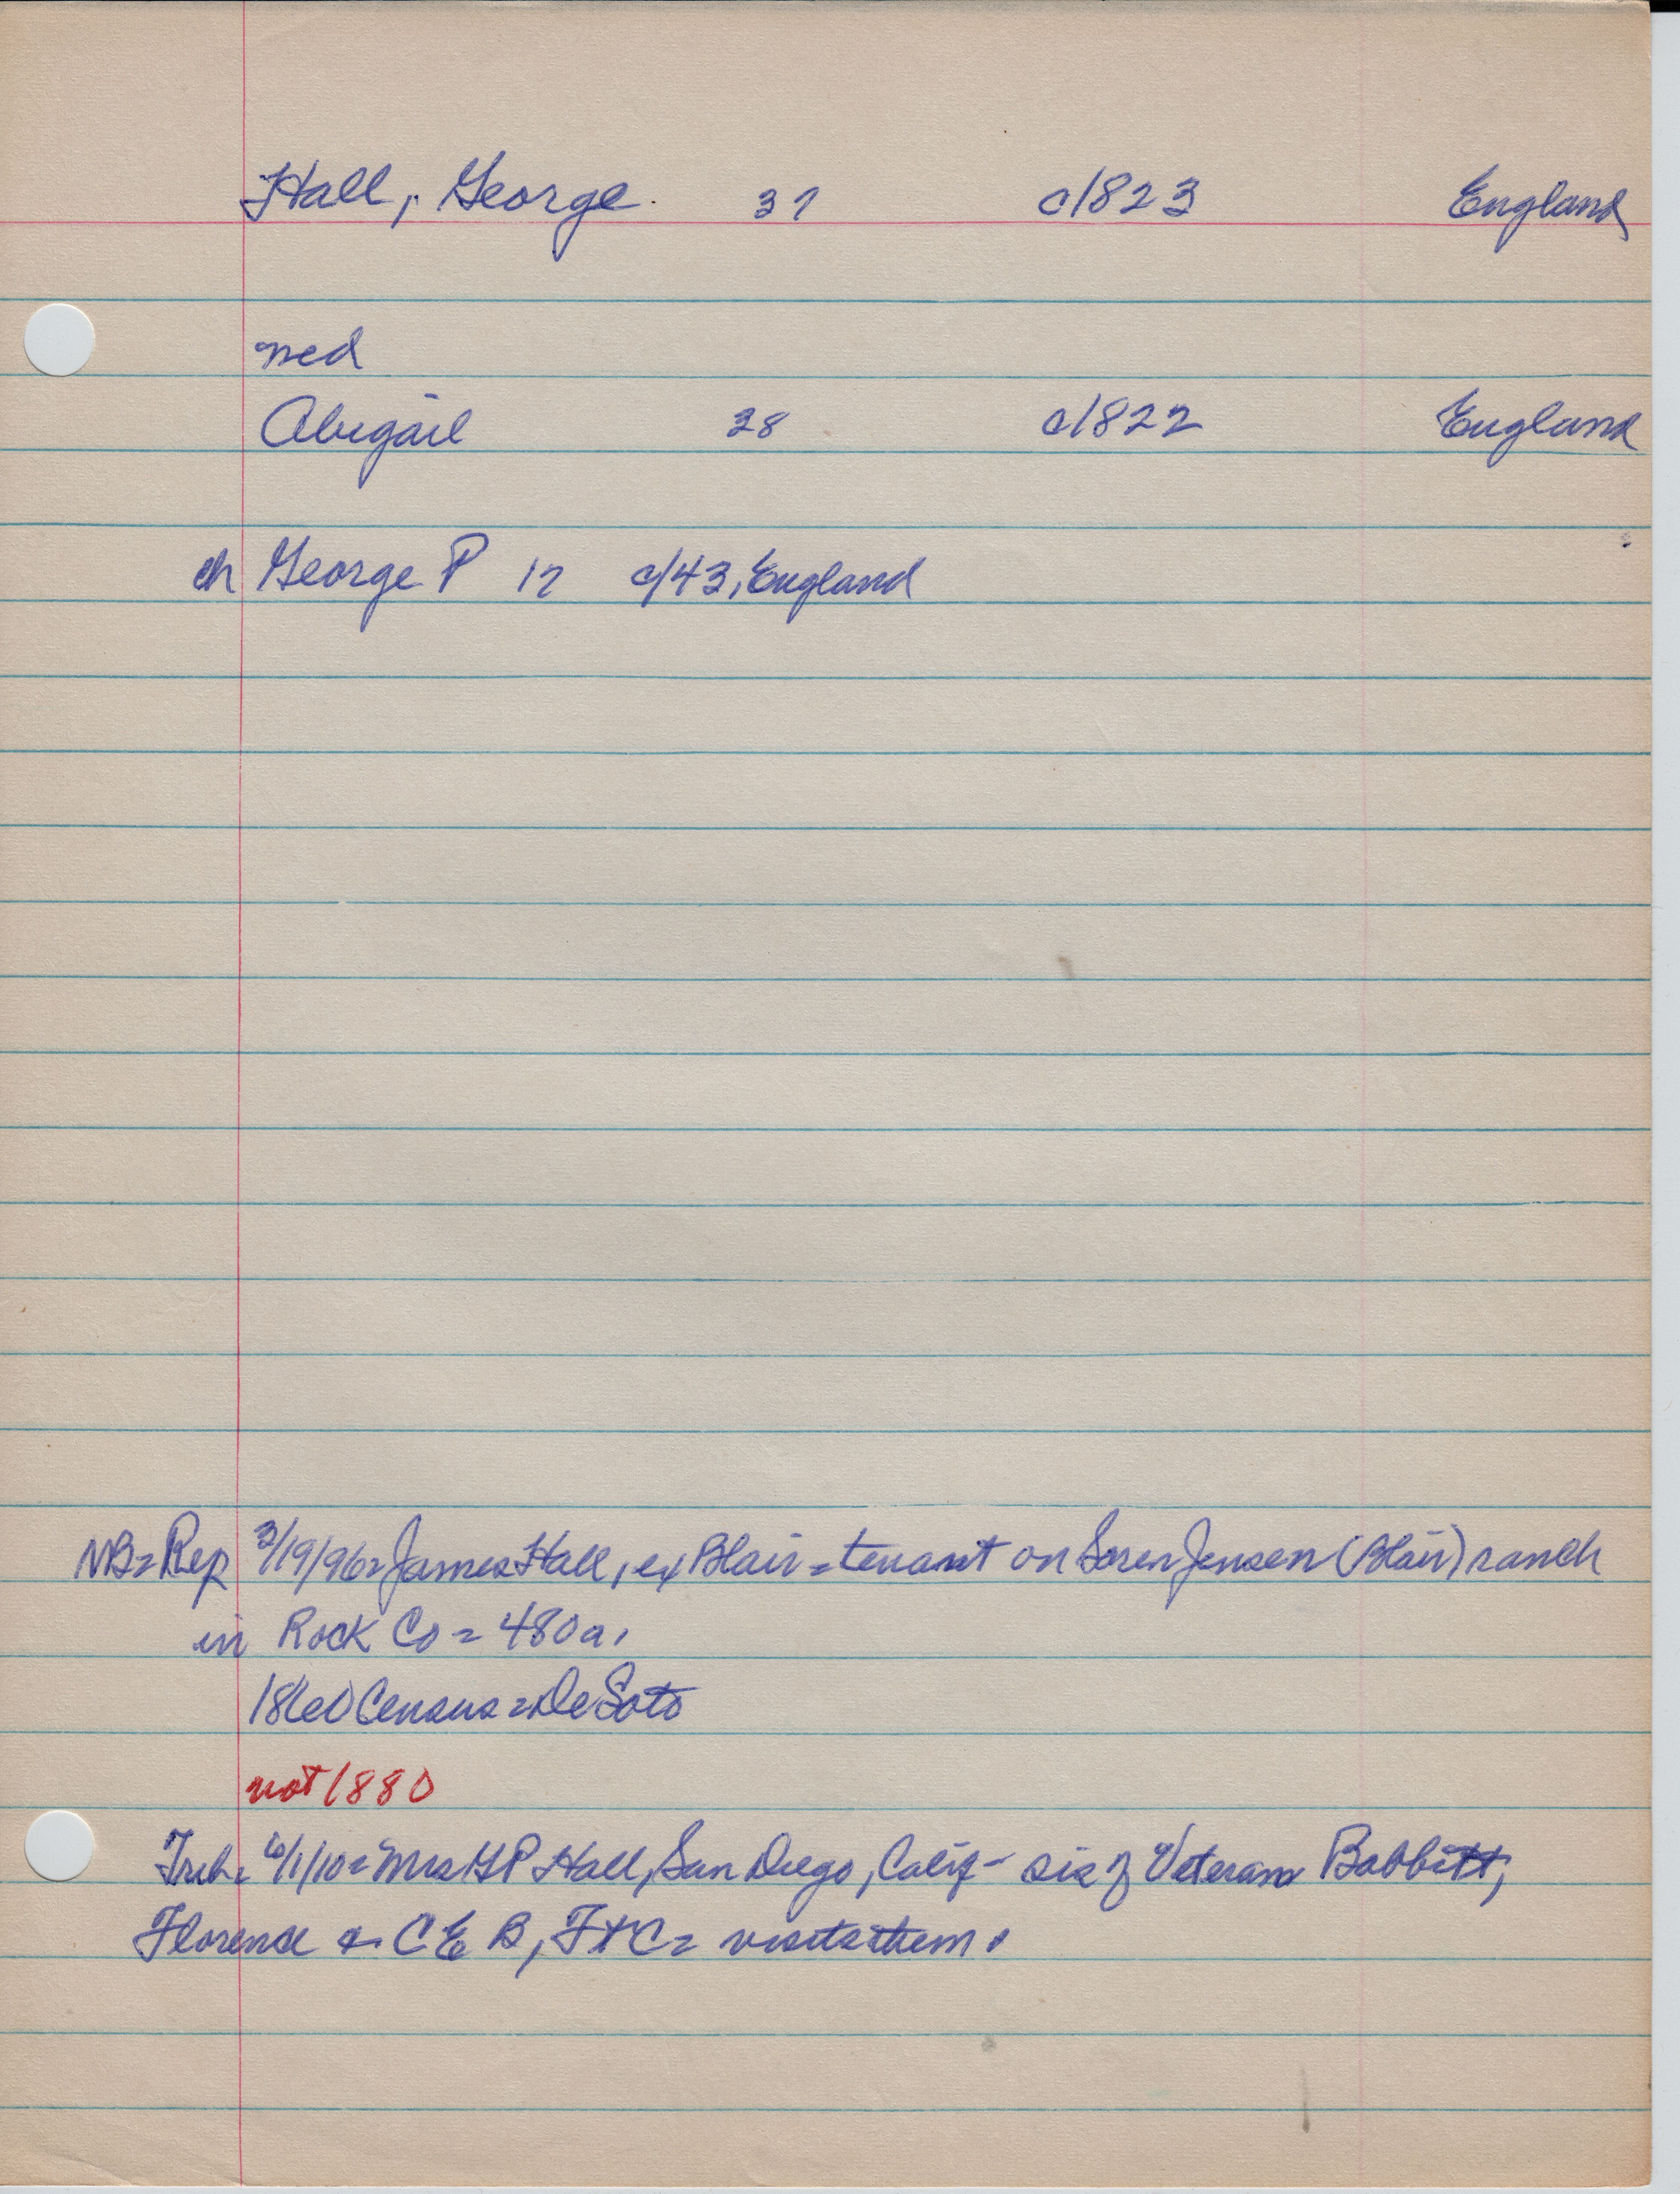 Hall, George 37 c1823 England
med
Abigail 38 c1822 England
ch George P 17 c/43, England
NB=Rep 3/19/96=James Hall, ex Blair=tenant on Soren Jensen (Blair) ranch
in Rock Co = 480a.
1860 Census=DeSoto
not 1880
Trib= 6/1/10=Mrs G P Hall, San Diego, Calif- sis of Veteran Babbitt,
Florence & C E B, Ft C= visits them.